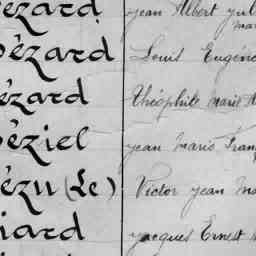 ézard Jean Albert Jul
Bézard Louis Eugène
ézard Théophile Marie
Béziel Jean Marie Fran
ézu (Le) Victor Jean Ma
iard Jacques Ernest